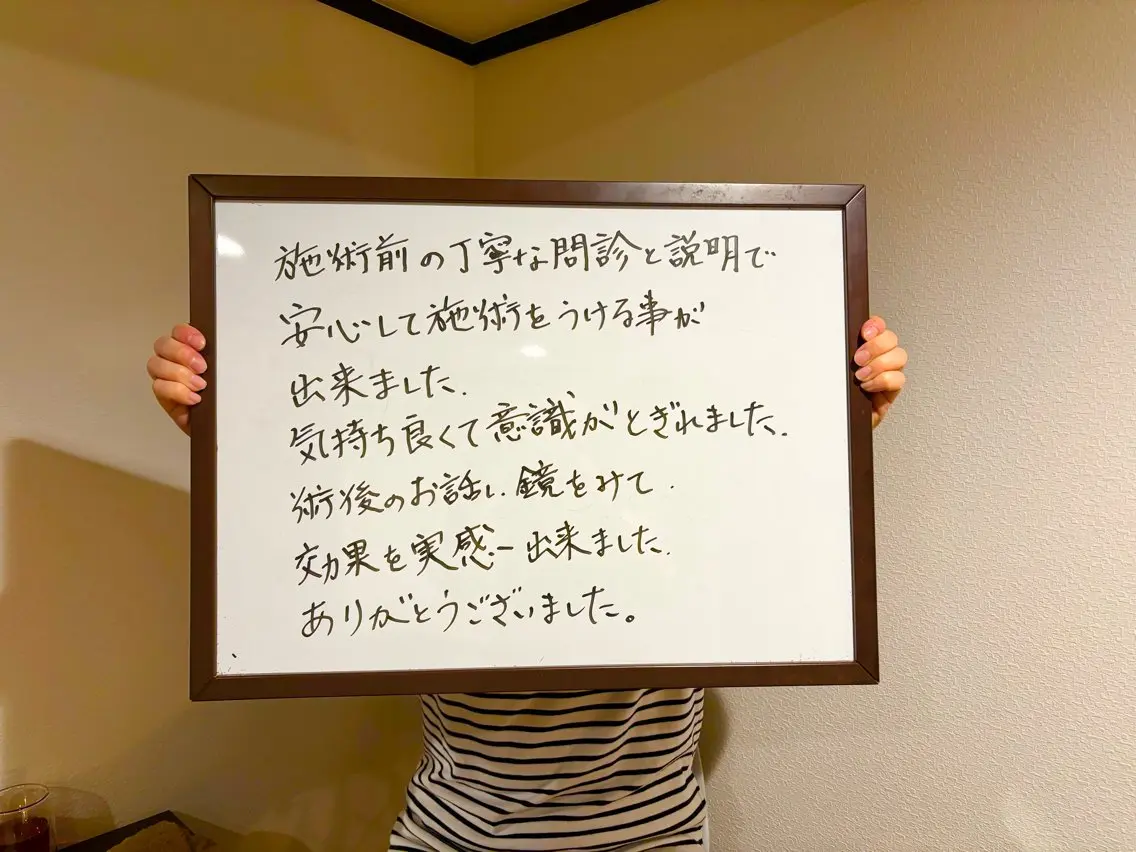 施術前の丁寧な問診と説明で
安心して施術をうける事が
出来ました.
気持ち良くて意識がとぎれました.
術後のお話し、鏡をみて.
効果を実感出来ました.
ありがとうございました。